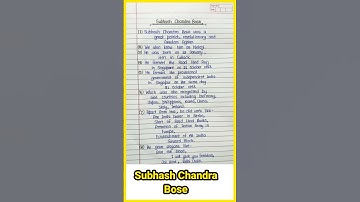 Subhash Chandra Bose
(1) Subhash Chandra Bose was a
great patriot, revolutionary and
freedom fighter.
(2) He also know him as Netaji.
(3) He was born on 23 January,
1897, in Cuttack.
(4) He formed the Azad Hind Fauj
in Singapore on 21 October 1943.
(5) He formed the provisional
government of independent India
in Singapore on the same day
21 October 1943.
(6) Which was also recognized by
nine countries including Germany,
Japan, Philippines,
Italy, Ireland.
(7) Apart from this, he did work like:-
Free India Center in Berlin,
Start of Azad Hind Radio,
Formation of Indian Army in
Europe,
Establishment of All India
Forward Block.
(8) He gave slogans like:-
Give me blood,
I will give you freedom,
Jai Hind, Delhi Chalo.
Subhash Chandra
Bose